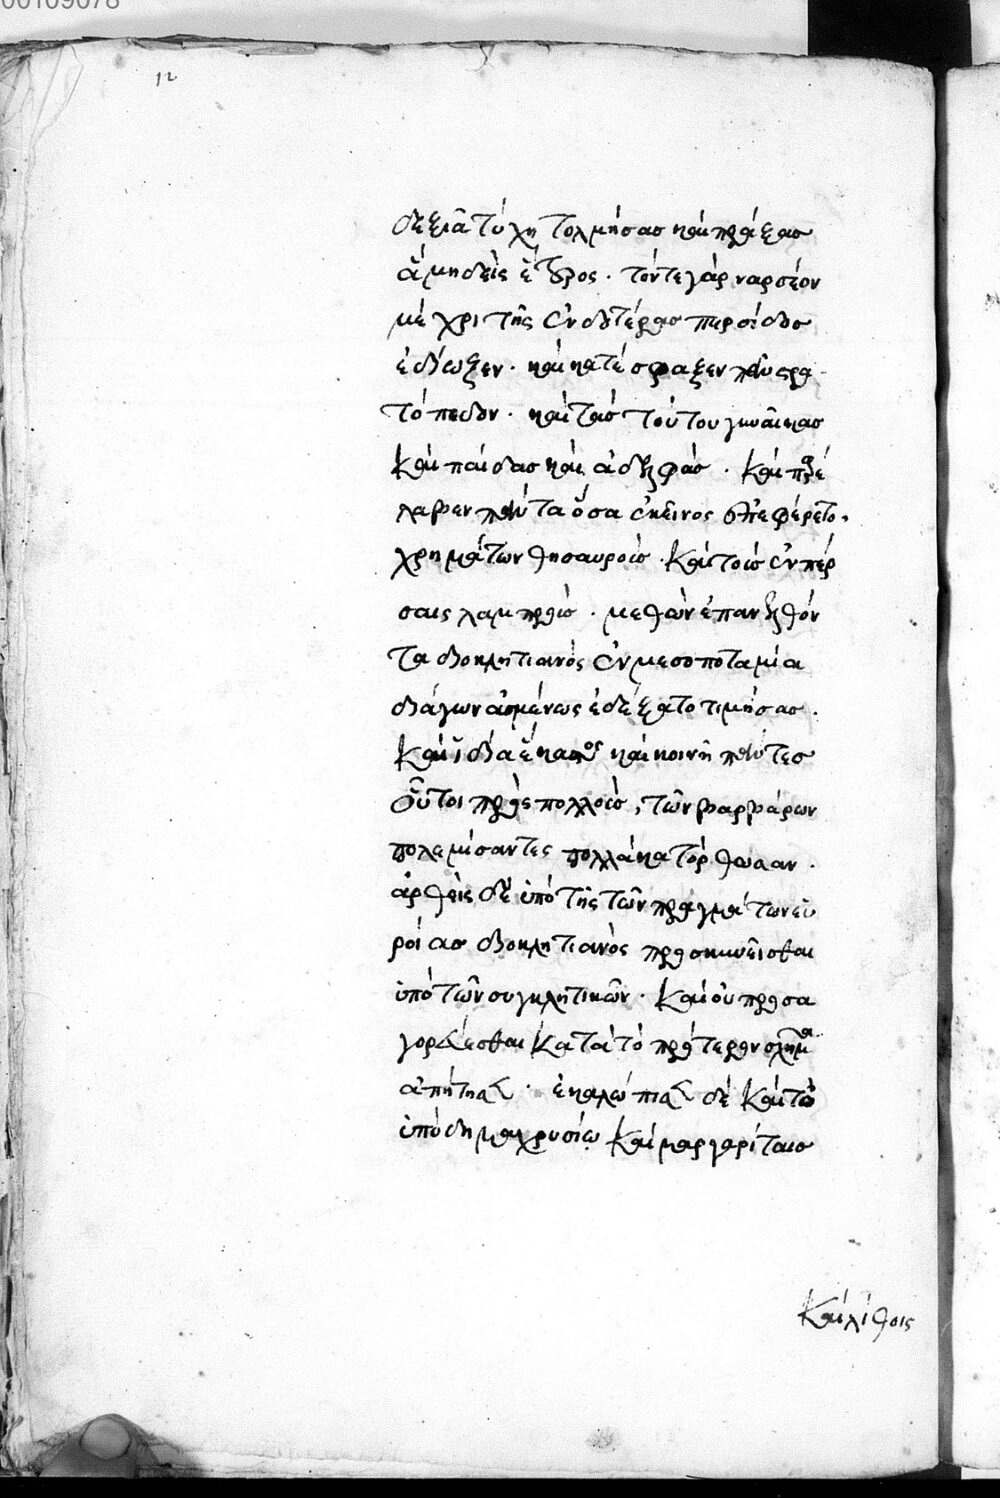 00109078
12
δεξιᾶ τύχη τολμήσας καὶ πράξας
ἃ μηδεὶς ἕτερος · τόν τε γὰρ ναρσέον
μέχρι τῆς ἐνδοτέρας περσίδος
ἐδίωξεν · καὶ κατέσφαξεν πᾶν στρα
τόπεδον · καὶ τὰς τούτου γυναῖκας
καὶ παῖδας καὶ ἀδελφάς · καὶ προσέ
λαβεν πάντα ὅσα ἐκεῖνος ἐπεφέρετο ·
χρημάτων θησαυροῖς · καὶ τοῖς ἐν πέρ
σαις λαμπροῖς · μεθ ὧν ἐπανελθόν
τα διοκλητιανὸς ἐν μεσοποταμία
διάγων ἀσμένως ἐδέξατο τιμήσας ·
καὶ ἰδία ἕκαστος καὶ κοινῆ πάντες
οὗτοι πρὸς πολλοῖς, τῶν βαρβάρων
πολεμίσαντες πολλὰ κατόρθωσαν ·
ἀρθεὶς δὲ ὑπὸ τῆς τῶν πραγμάτων εὐ
ροίας διοκλητιανὸς προσκυνεῖσθαι
ὑπὸ τῶν συγκλητικῶν · καὶ οὐ προσα
γορεύεσθαι κατὰ τὸ πρότερον σχῆμα
ἀπήτησεν · ἐκαλώπισεν δὲ καὶ τὸ
ὑπόδημα χρυσίῳ καὶ μαργαρίταις
καὶ λίθοις